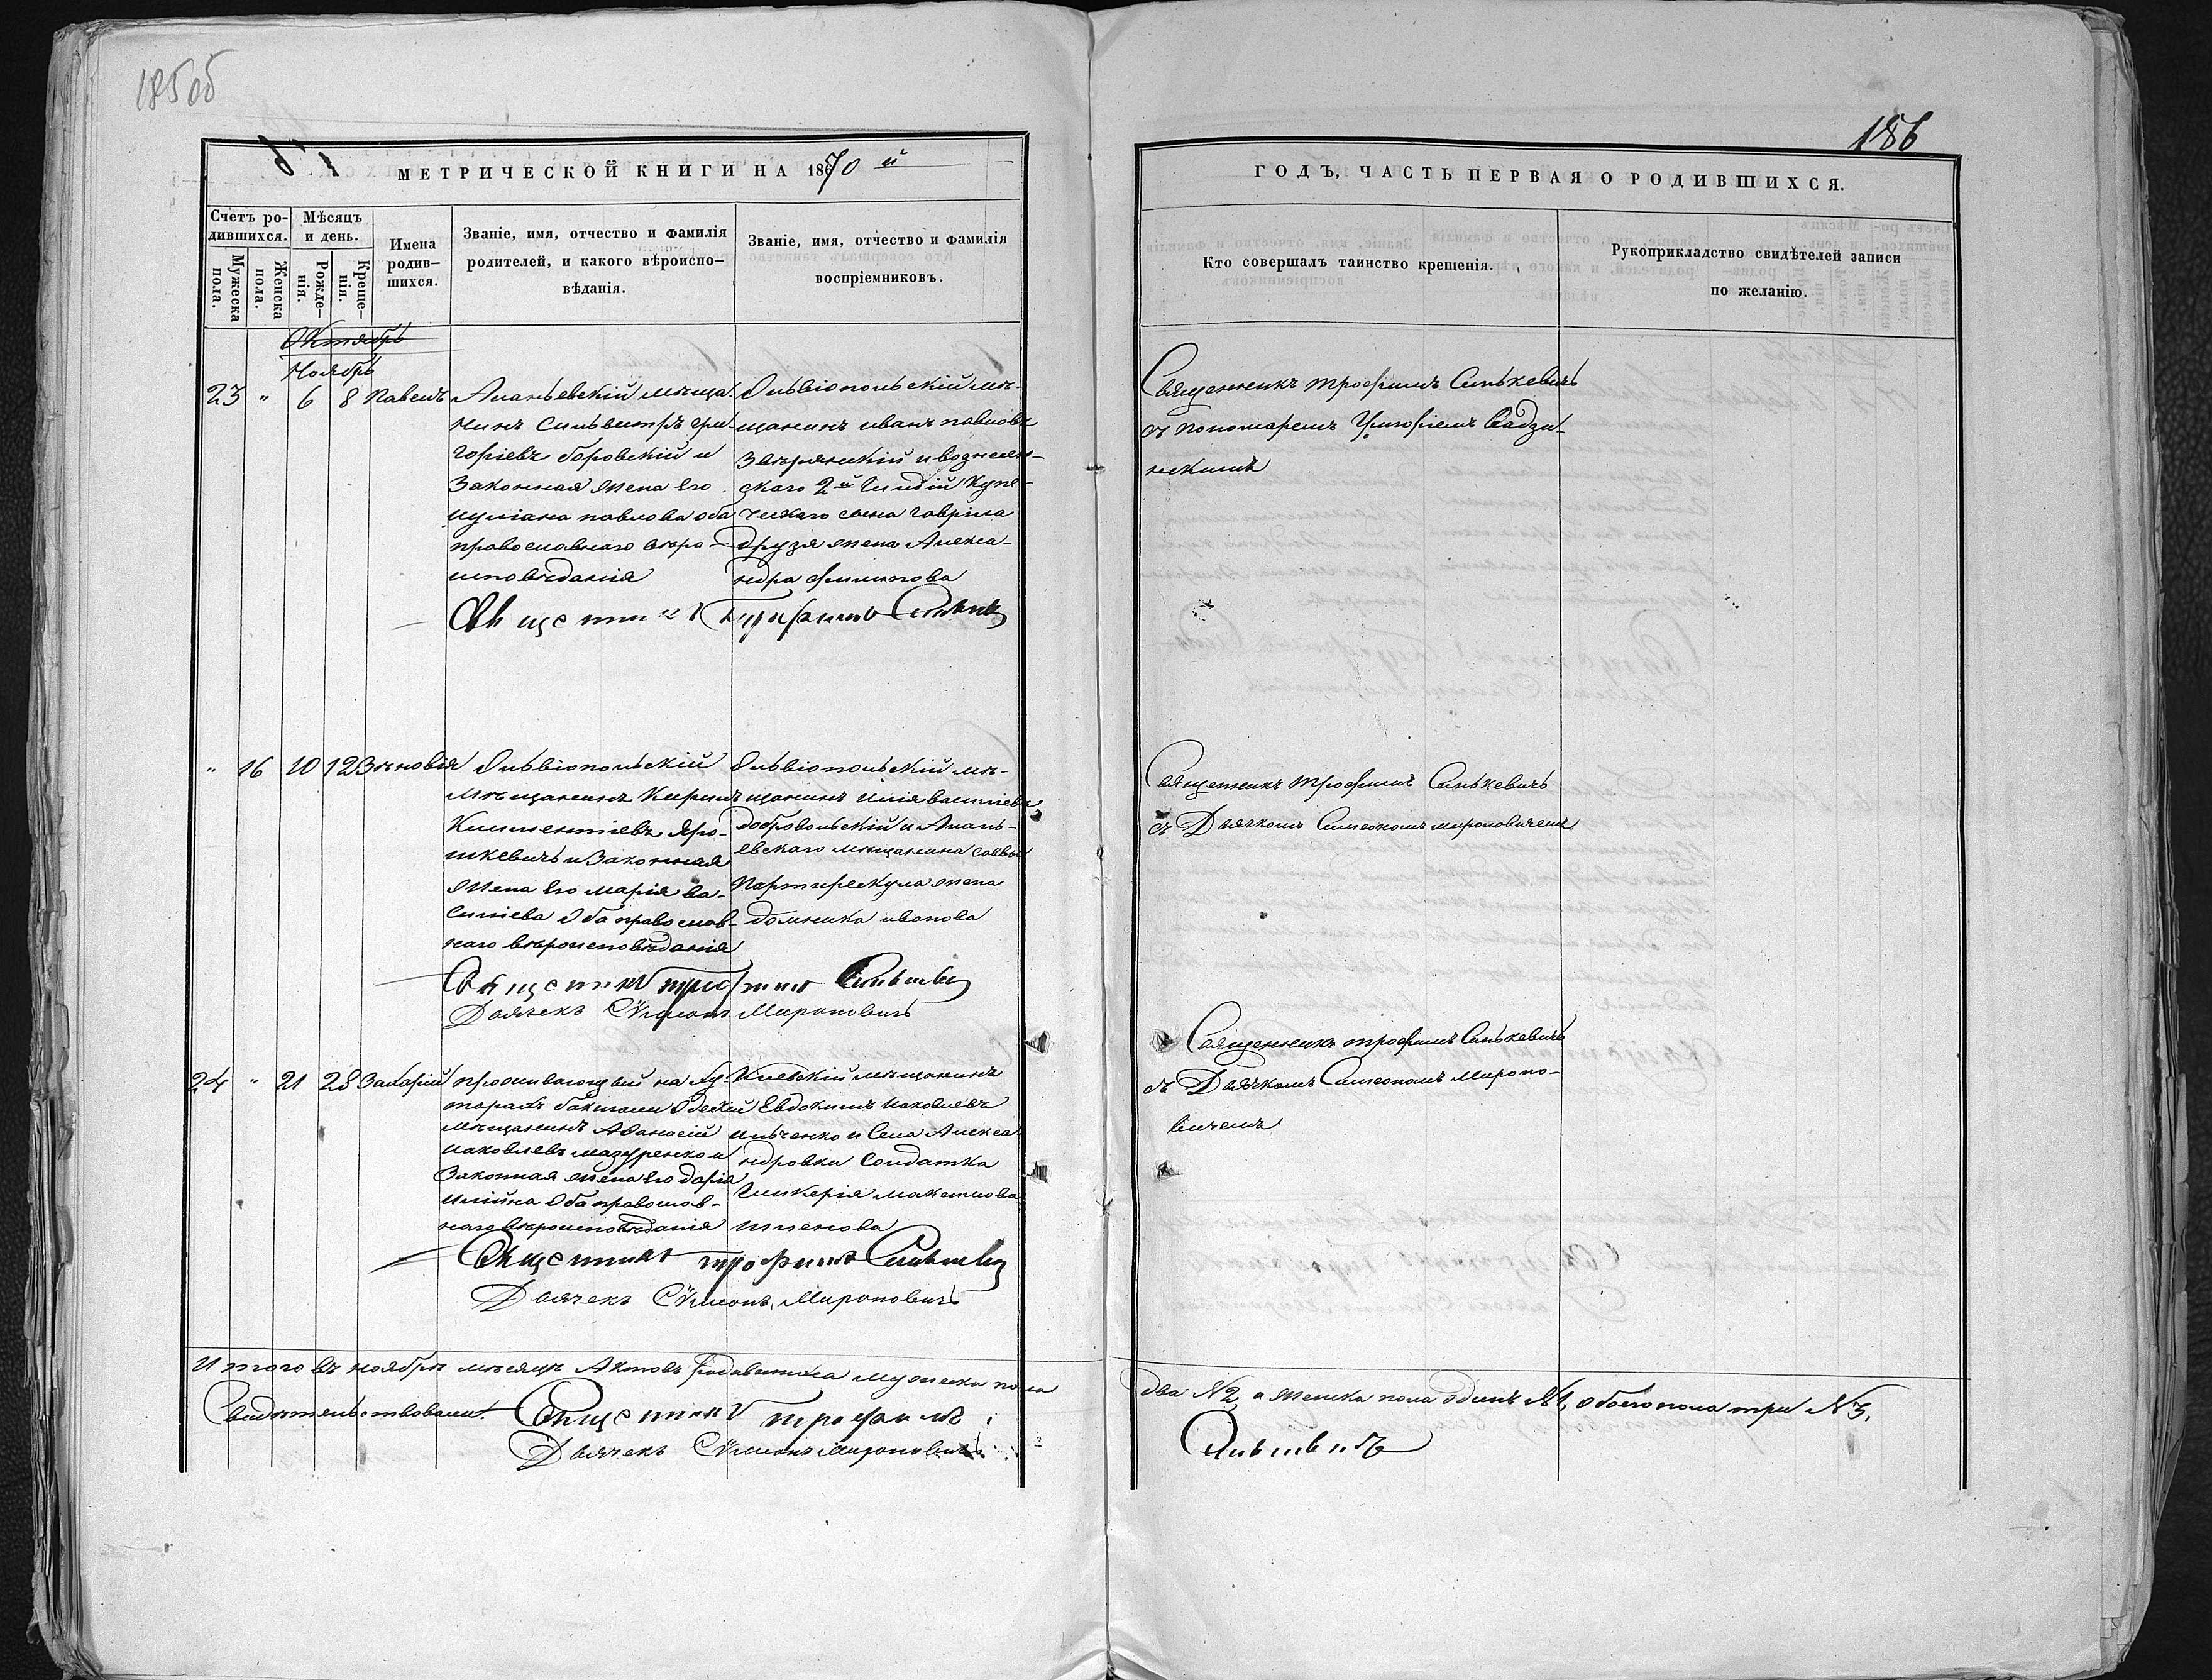 185 об
186
МЕТРИЧЕСКОЙ КНИГИ НА 1870 й
ГОДЪ, ЧАСТЬ ПЕРВАЯ О РОДИВШИХСЯ.
Счетъ ро-
дившихся.
Мужеска
пола.
Женска
пола.
Мѣсяцъ
и день.
Рожде-
нія.
Креще-
нія.
Имена
родив-
шихся.
Званіе, имя, отчество и фамилія
родителей, и какого вѣроиспо-
вѣданія.
Званіе, имя, отчество и фамилія
воспріемниковъ.
Кто совершалъ таинство крещенія.
Рукоприкладство свидѣтелей записи
по желанію.
Октябрь
Ноябрь
23 " 6 8 Павелъ
Ананьевскій мѣща-
нинъ Сильвестръ Гри-
горіевъ Боровскій и
Законная жена его
Иуліана павлова оба
православнаго вѣро-
исповѣданія
Ольвіопольскій мѣ-
щанинъ иванъ павловъ
Звѣрянскій и вознесен-
скаго 2й Гильдіи Купе-
ческаго сына Гаврила
Друзя жена Алекса-
ндра филипова
Священникъ Трофимъ Синькевичъ
Священникъ трофимъ Синькевичъ
съ пономаремъ Григоріемъ Садзи-
нскимъ
" 16 10 12 Зѣновія
Ольвіопольскій
Мѣщанинъ Кирилъ
Климентіевъ Яро-
шкевичъ и Законная
жена его марія ва-
силіева Оба православ-
наго вѣроисповѣданія
Ольвіопольскій мѣ-
щанинъ илія василіевъ
добровольскій и Анань-
евскаго мѣщанина Саввы
Партирескула жена
домника иванова
Священникъ трофимъ Синькевичъ
Дьячекъ Сѵмеонъ Мироновичъ
Священникъ Трофимъ Синькевичъ
съ Дьячкомъ Симеономъ мироновичемъ
24 " 21 28 Захарій
проживающій на ху-
торахъ бакшалы Одескій
мѣщанинъ Аѳанасій
иаковлевъ мазуренко и
Законная жена его дарія
илійна Оба православ-
наго вѣроисповѣданія
Киевскій мѣщанинъ
Евдокимъ иаковлевъ
ильченко и Села Алекса-
ндровки Солдатка
Гликерія максимова
Священникъ трофимъ Синькевичъ
Дьячекъ Сѵмеонъ Мироновичъ
Священникъ трофимъ Синькевичъ
съ Дьячкомъ Симеономъ Мироно-
вичемъ
Итого въ ноябрѣ мѣсяцѣ Актовъ родившихся мужеска пола
два №2, а женска пола одинъ №1, обоего пола три №3.
Свидѣтельствовали: Священникъ трофимъ
Синькевичъ
Дьячекъ Сѵмеонъ Мироновичъ